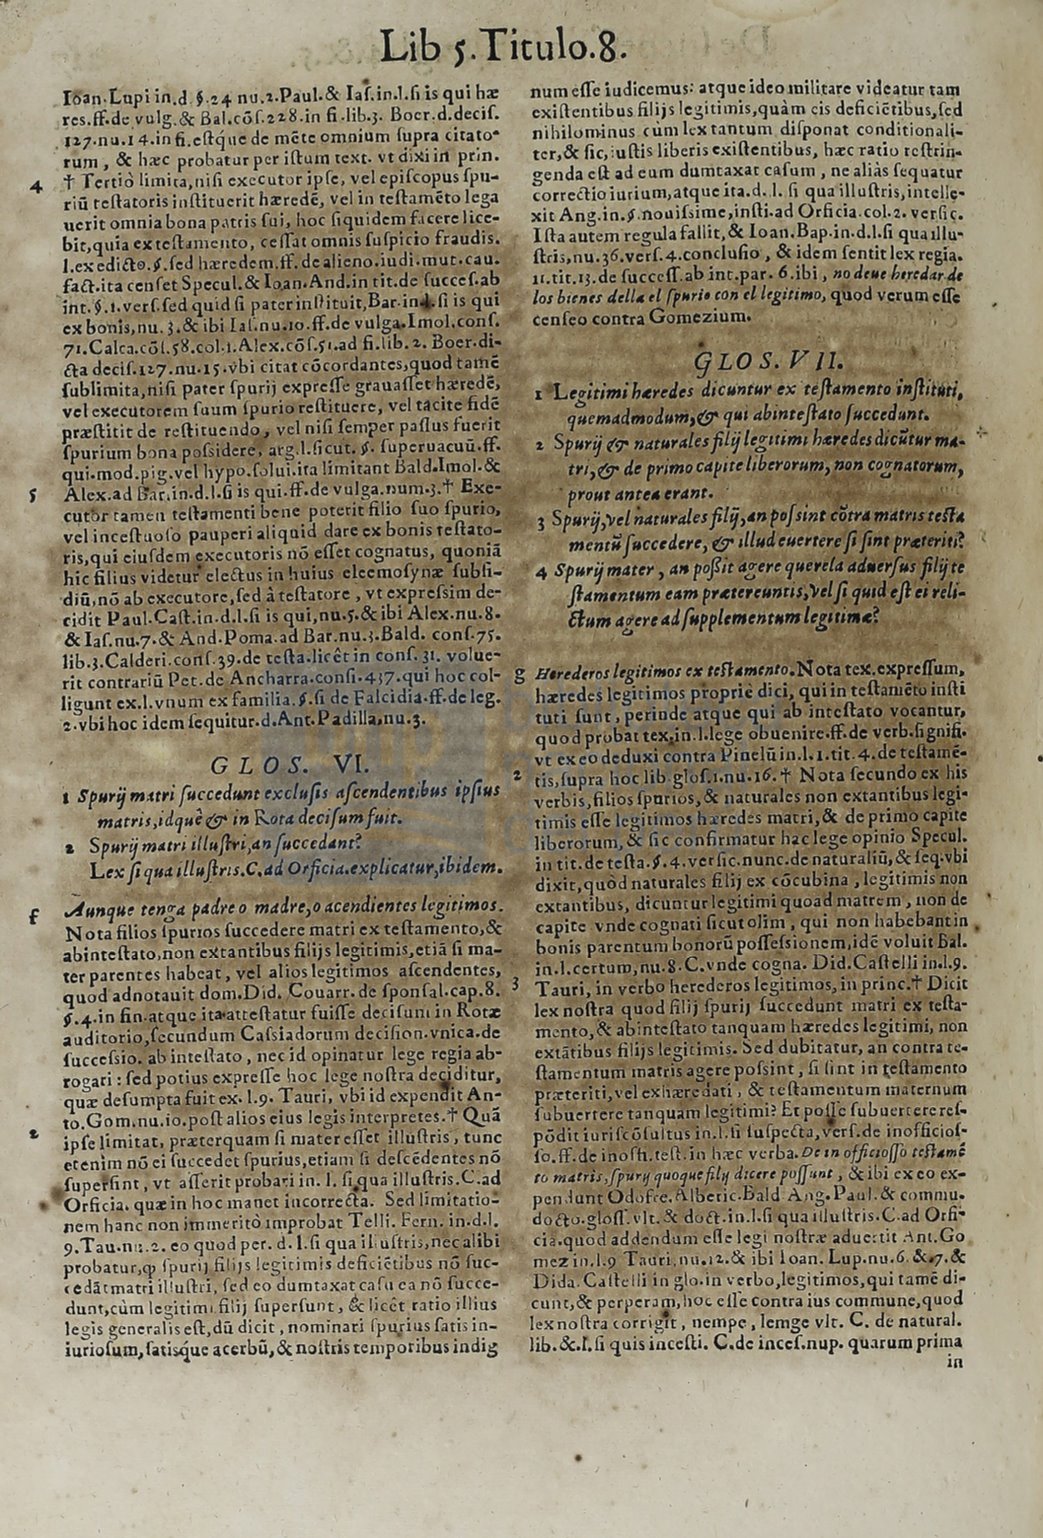 Lib 5.Titulo.8.
Ioan.Lupi in.d.§.24 nu.2.Paul.& Iaſ.in.l.ſi is qui hæ
res.ff.de vulg.& Bal.cõſ.228.in fi.lib.3. Boer.d.deciſ.
127.nu.14.in fi.eſtq́ue de mẽte omnium ſupra citato-
rum, & hæc probatur per iſtum text. vt dixi in prin.
4 † Tertiò limita,niſi executor ipſe, vel epiſcopus ſpu-
riũ teſtatoris inſtituerit hæredẽ, vel in teſtamẽto lega
uerit omnia bona patris ſui, hoc ſiquidem facere lice-
bit,quia ex teſtamento, ceſſat omnis ſuſpicio fraudis.
l.ex edicto.§.ſed hæredem.ff.de alieno.iudi.mut.cau.
fact.ita cenſet Specul.& Ioan.And.in tit.de ſucceſ.ab
int.§.1.verſ.ſed quid ſi pater inſtituit,Bar.in.l.ſi is qui
ex bonis,nu.3.& ibi Iaſ.nu.10.ff.de vulga.Imol.conſ.
71.Calca.cõſ.58.col.1.Alex.cõſ.51.ad fi.lib.2. Boer.di-
cta deciſ.127.nu.15.vbi citat cõcordantes,quod tamẽ
ſublimita,niſi pater ſpurij expreſſe grauaſſet hæredẽ,
vel executorem ſuum ſpurio reſtituere, vel tacite fidẽ
præſtitit de reſtituendo, vel niſi ſemper paſſus fuerit
ſpurium bona poſsidere, arg.l.ſicut.§. ſuperuacuũ.ff.
qui.mod.pig.vel hypo.ſolui.ita limitant Bald.Imol.&
5 Alex.ad Bar.in.d.l.ſi is qui.ff.de vulga.num.3.† Exe-
cutor tamen teſtamenti bene poterit filio ſuo ſpurio,
vel inceſtuoſo pauperi aliquid dare ex bonis teſtato-
ris,qui eiuſdem executoris nõ eſſet cognatus, quoniã
hic filius videtur electus in huius eleemoſynæ ſubſi-
diũ,nõ ab executore,ſed à teſtatore, vt expreſsim de-
cidit Paul.Caſt.in.d.l.ſi is qui,nu.5.& ibi Alex.nu.8.
& Iaſ.nu.7.& And.Poma.ad Bar.nu.3.Bald. conſ.75.
lib.3.Calderi.conſ.39.de teſta.licêt in conſ.31. volue-
rit contrariũ Pet.de Ancharra.conſi.437.qui hoc col-
ligunt ex.l.vnum ex familia.§.ſi de Falcidia.ff.de leg.
2.vbi hoc idem ſequitur.d.Ant.Padilla,nu.3.
GLOS. VI.
1 Spurij matri ſuccedunt excluſis aſcendentibus ipſius
matris,idquê & in Rota deciſum fuit.
2 Spurij matri illuſtri,an ſuccedant?
Lex ſi qua illuſtris.C.ad Orficia.explicatur,ibidem.
f Aunque tenga padre o madre,o acendientes legitimos.
Nota filios ſpurios ſuccedere matri ex teſtamento,&
abinteſtato,non extantibus filijs legitimis,etiã ſi ma-
ter parentes habeat, vel alios legitimos aſcendentes,
quod adnotauit dom.Did. Couarr.de ſponſal.cap.8.
§.4.in fin.atque ita atteſtatur fuiſſe deciſum in Rotæ
auditorio,ſecundum Caſsiadorum deciſion.vnica.de
ſucceſsio. ab inteſtato, nec id opinatur lege regia ab-
rogari: ſed potius expreſſe hoc lege noſtra deciditur,
quæ deſumpta fuit ex.l.9. Tauri, vbi id expendit An-
to.Gom.nu.10.poſt alios eius legis interpretes.† Quã
2 ipſe limitat, præterquam ſi mater eſſet illuſtris, tunc
etenim nõ ei ſuccedet ſpurius,etiam ſi deſcẽdentes nõ
ſuperſint, vt aſſerit probari in. l. ſi qua illuſtris.C.ad
Orficia. quæ in hoc manet incorrecta. Sed limitatio-
nem hanc non immeritò improbat Telli. Fern. in.d.l.
9.Tau.nu.2. eo quod per. d.l.ſi qua illuſtris,nec alibi
probatur,ꝙ ſpurij filijs legitimis deficiẽtibus nõ ſuc-
cedãt matri illuſtri, ſed eo dumtaxat caſu ea nõ ſucce-
dunt,cùm legitimi filij ſuperſunt, & licêt ratio illius
legis generalis eſt,dũ dicit, nominari ſpurius ſatis in-
iurioſum,ſatisque acerbũ,& noſtris temporibus indig
num eſſe iudicemus: atque ideo militare videatur tam
exiſtentibus filijs legitimis,quàm eis deficiẽtibus,ſed
nihilominus cum lex tantum diſponat conditionali-
ter,& ſic,iuſtis liberis exiſtentibus, hæc ratio reſtrin-
genda eſt ad eum dumtaxat caſum, ne aliàs ſequatur
correctio iurium,atque ita.d. l. ſi qua illuſtris,intelle-
xit Ang.in.§.nouiſsime,inſti.ad Orficia.col.2. verſic.
Iſta autem regula fallit,& Ioan.Bap.in.d.l.ſi qua illu-
ſtris,nu.36.verſ.4.concluſio, & idem ſentit lex regia.
11.tit.13.de ſucceſſ.ab int.par.6.ibi, no deue heredar de
los bienes della el ſpurio con el legitimo, quod verum eſſe
cenſeo contra Gomezium.
GLOS. VII.
1 Legitimi hæredes dicuntur ex teſtamento inſtituti,
quemadmodum,& qui abinteſtato ſuccedunt.
2 Spurij & naturales filij legitimi hæredes dicũtur ma-
tri,& de primo capite liberorum, non cognatorum,
prout antea erant.
3 Spurij,vel naturales filij,an poſsint cõtra matris teſta
mentũ ſuccedere, & illud euertere ſi ſint præteriti?
4 Spurij mater, an poßit agere querela aduerſus filij te
ſtamentum eam prætereuntis,vel ſi quid eſt ei reli-
ctum agere ad ſupplementum legitimæ?
g Herederos legitimos ex teſtamento.Nota tex.expreſſum,
hæredes legitimos propriè dici, qui in teſtamẽto inſti
tuti ſunt, perinde atque qui ab inteſtato vocantur,
quod probat tex.in.l.lege obuenire.ff.de verb.ſignifi.
vt ex eo deduxi contra Pinelũ in.l.1.tit.4.de teſtamẽ-
2 tis,ſupra hoc lib.gloſ.1.nu.16.† Nota ſecundo ex his
verbis,filios ſpurios,& naturales non extantibus legi-
timis eſſe legitimos hæredes matri,& de primo capite
liberorum, & ſic confirmatur hac lege opinio Specul.
in tit.de teſta.§.4.verſic.nunc.de naturaliũ,& ſeq.vbi
dixit,quòd naturales filij ex cõcubina, legitimis non
extantibus, dicuntur legitimi quoad matrem, non de
capite vnde cognati ſicut olim, qui non habebant in
bonis parentum bonorũ poſſeſsionem,idẽ voluit Bal.
in.l.certum,nu.8.C.vnde cogna. Did.Caſtelli in.l.9.
3 Tauri, in verbo herederos legitimos,in princ.† Dicit
lex noſtra quod filij ſpurij ſuccedunt matri ex teſta-
mento,& abinteſtato tanquam hæredes legitimi, non
extãtibus filijs legitimis. Sed dubitatur, an contra te-
ſtamentum matris agere poſsint, ſi ſint in teſtamento
præteriti,vel exhæredati, & teſtamentum maternum
ſubuertere tanquam legitimi? Et poſſe ſubuertere reſ-
põdit iuriſcõſultus in.l.ſi ſuſpecta,verſ.de inofficioſ-
ſo.ff.de inoffi.teſt.in hæc verba.De in officioſſo teſtamẽ
to matris,ſpurij quoque filij dicere poſſunt, & ibi ex eo ex-
pendunt Odofre.Alberic.Bald Ang.Paul.& commu.
docto.gloſſ.vlt.& doct.in.l.ſi qua illuſtris.C.ad Orfi-
cia.quod addendum eſſe legi noſtræ aduertit Ant.Go
mez in.l.9 Tauri,nu.12.& ibi Ioan.Lup.nu.6.&.7.&
Dida.Caſtelli in glo.in verbo,legitimos,qui tamẽ di-
cunt,& perperam,hoc eſſe contra ius commune,quod
lex noſtra corrigit, nempe, lemge vlt. C. de natural.
lib.&.l.ſi quis inceſti. C.de inceſ.nup. quarum prima
in